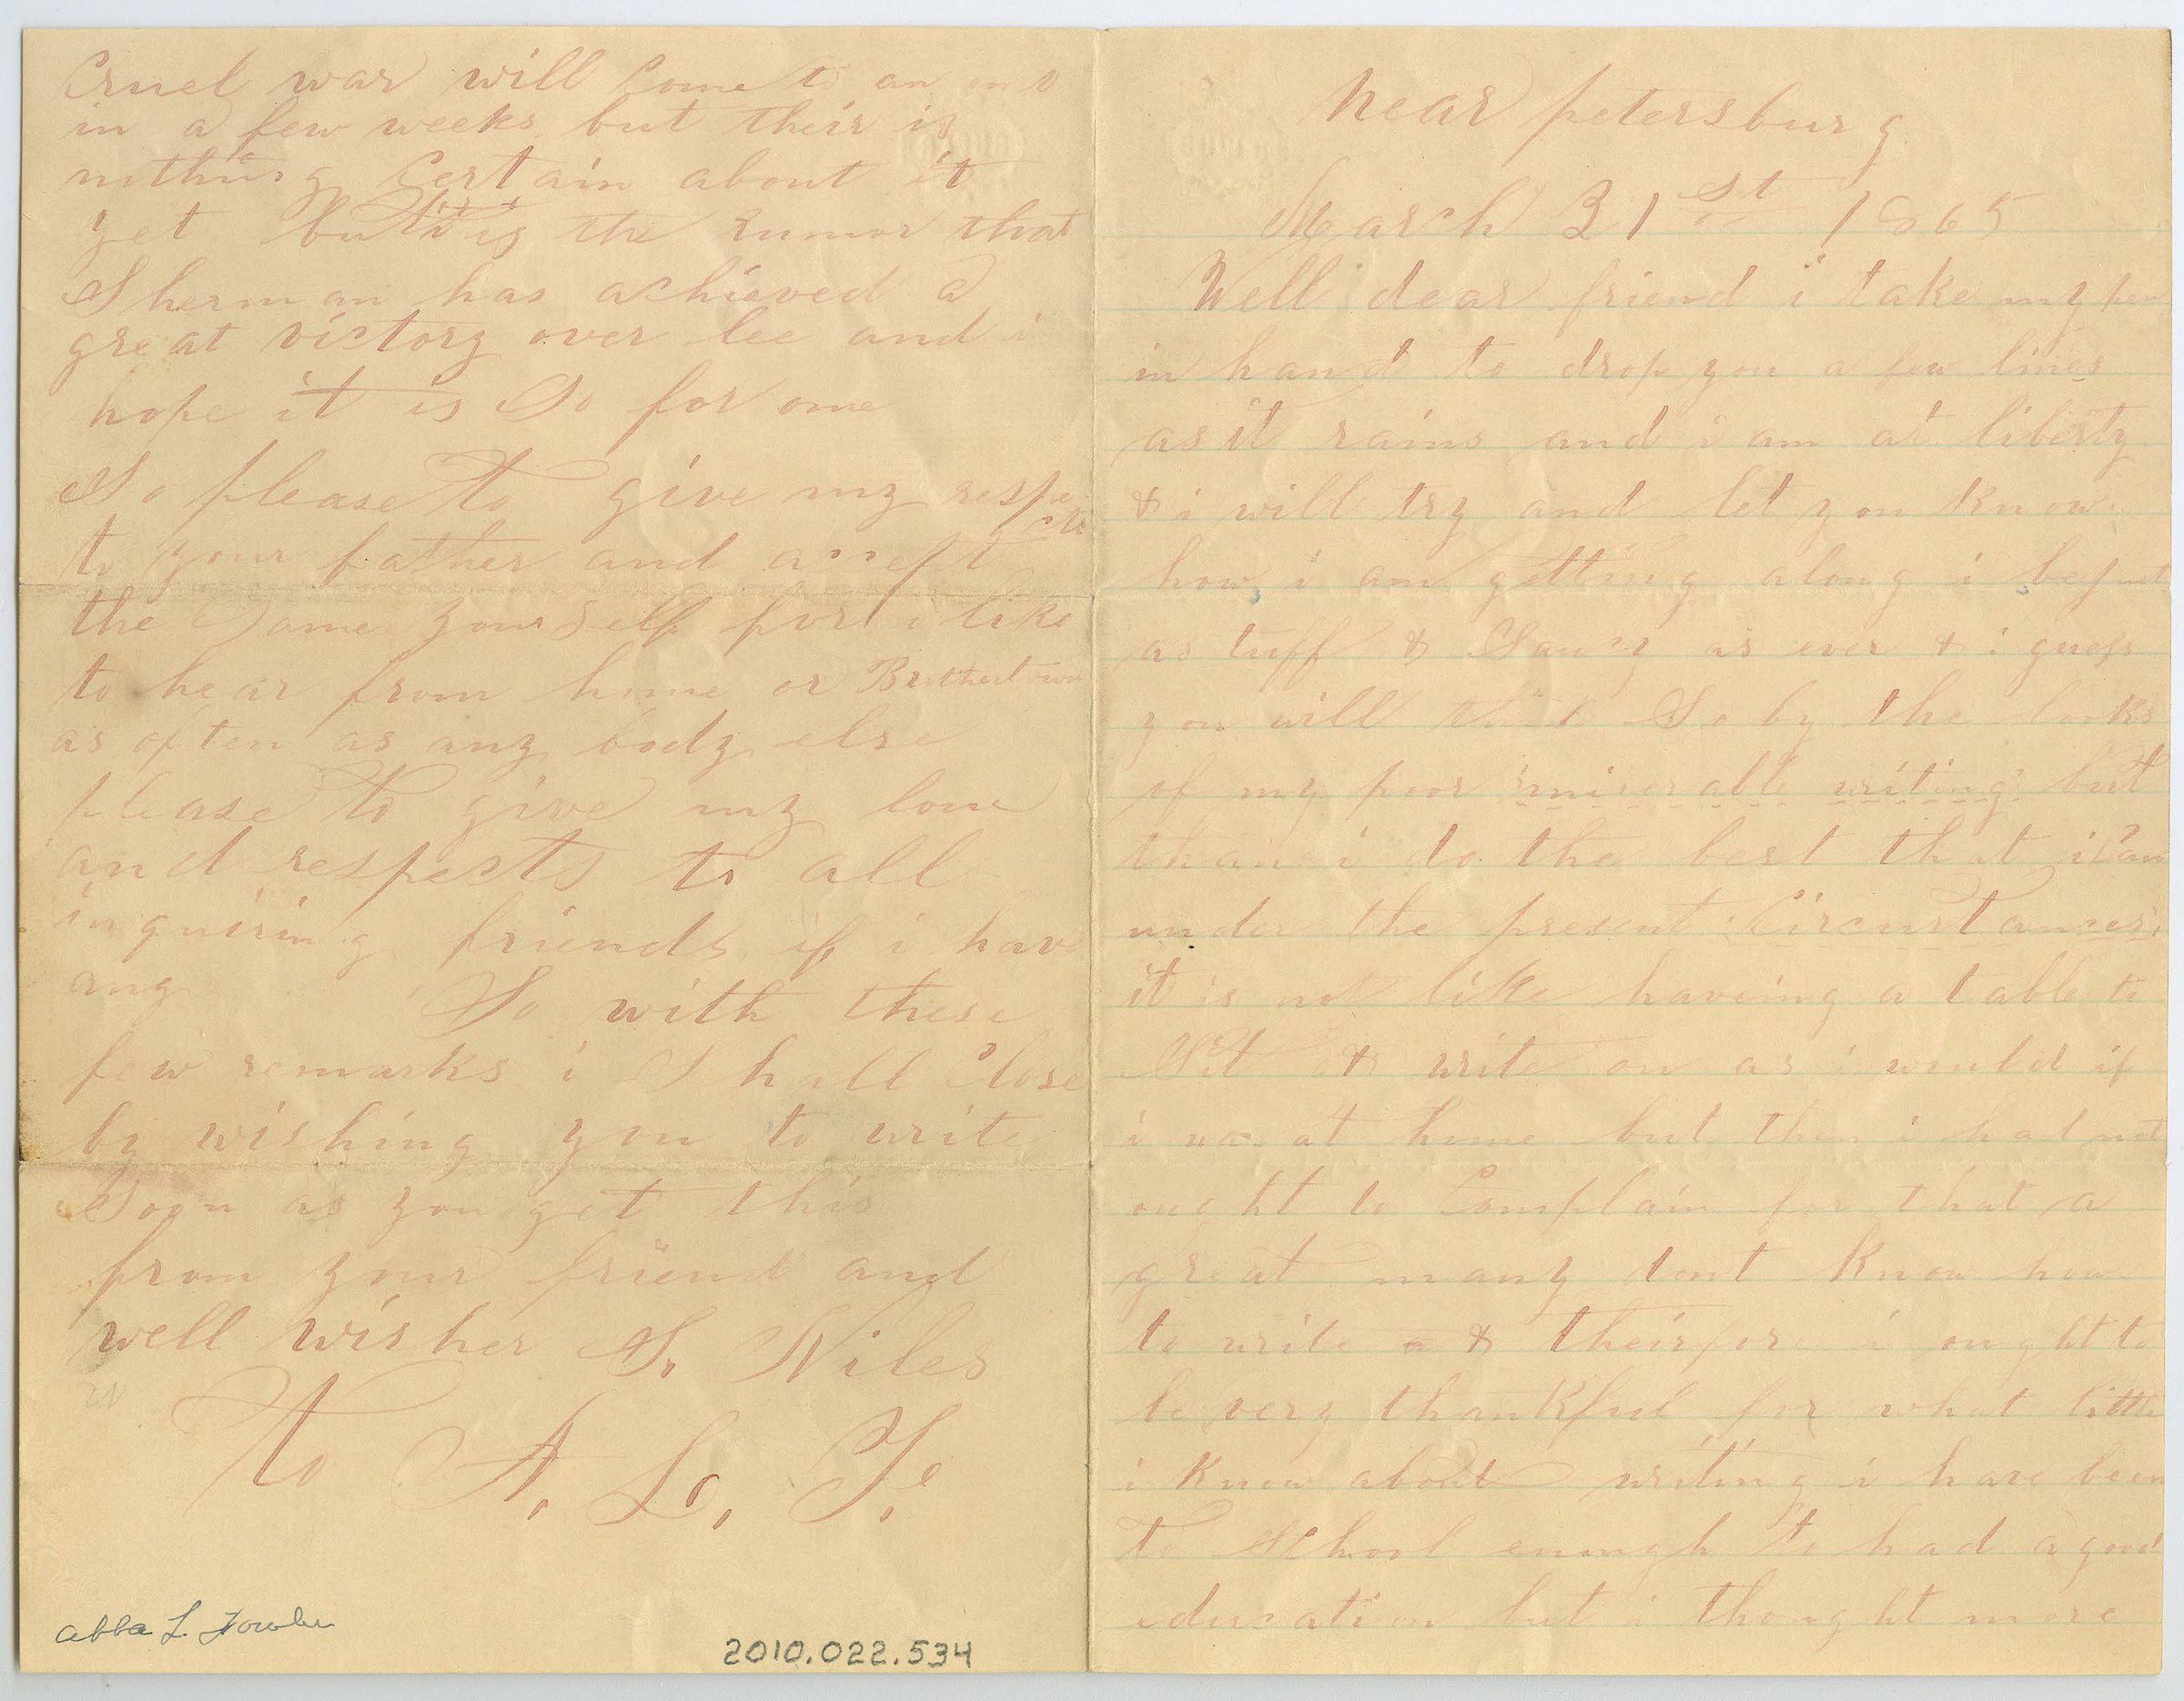 Near petersburg
March 21st 1865
Well dear friend i take my pen
in hand to drop you a few lines
as it rains and i am at liberty
& i will try and let you know
how i am getting along i be just
as tuff & Saucy as ever & i guess
you will think So by the looks
of my poor miserable writing but
than i do the best that i Can
under the present Circurstances,
it is not like haveing a table to
Set & write on as i would if
i was at home but then i had not
ought to Complain for that a
great many dont Know how
to write & theirfore i ought to
be very thankful for what little
i know about writing i have been
to School enough to had a good
education but i thought more
Cruel war will Come to an end
in a few weeks but their is
nothing Certain about it
yet but it is the rumor that
Sherman has achieved a
great victory over lee and i
hope it is So for one
So please to give my respects
to your father and accept
the Same yourself for i like
to hear from home or Brothertown
as often as any body else
please to give my love
and respects to all
inquiring friends if i have
any So with these
few remarks i Shall Close
by wishing you to write
Soon as you get this
from your friend and
well wisher S. Niles
To A. L. F.
Abba L. Fowler
2010.022.534